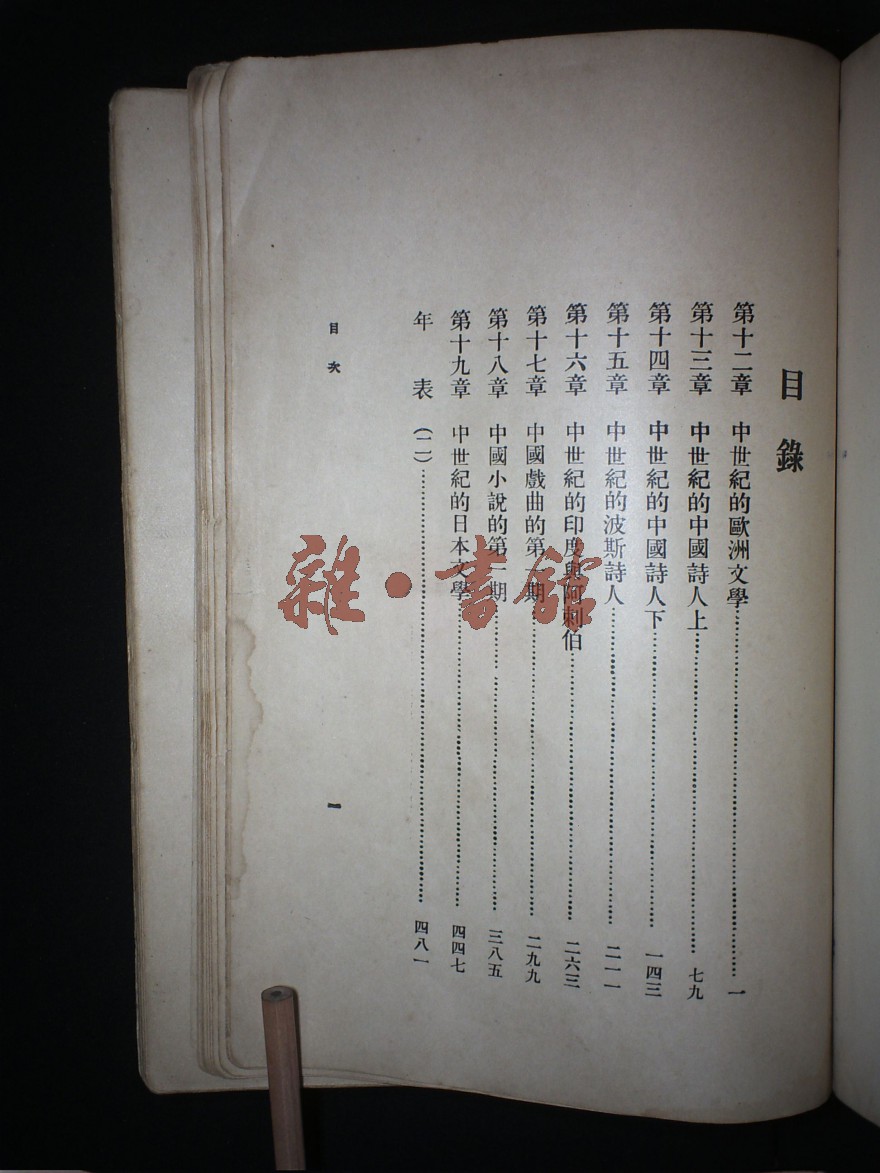 目錄
第十二章 中世紀的歐洲文學…………一
第十三章 中世紀的中國詩人上…………七九
第十四章 中世紀的中國詩人下…………一四三
第十五章 中世紀的波斯詩人…………二一一
第十六章 中世紀的印度與阿剌伯…………二六三
第十七章 中國戲曲的第一期…………二九九
第十八章 中國小說的第一期…………三八五
第十九章 中世紀的日本文學…………四四七
年表(二)…………四八一
目次
一
雜·書館